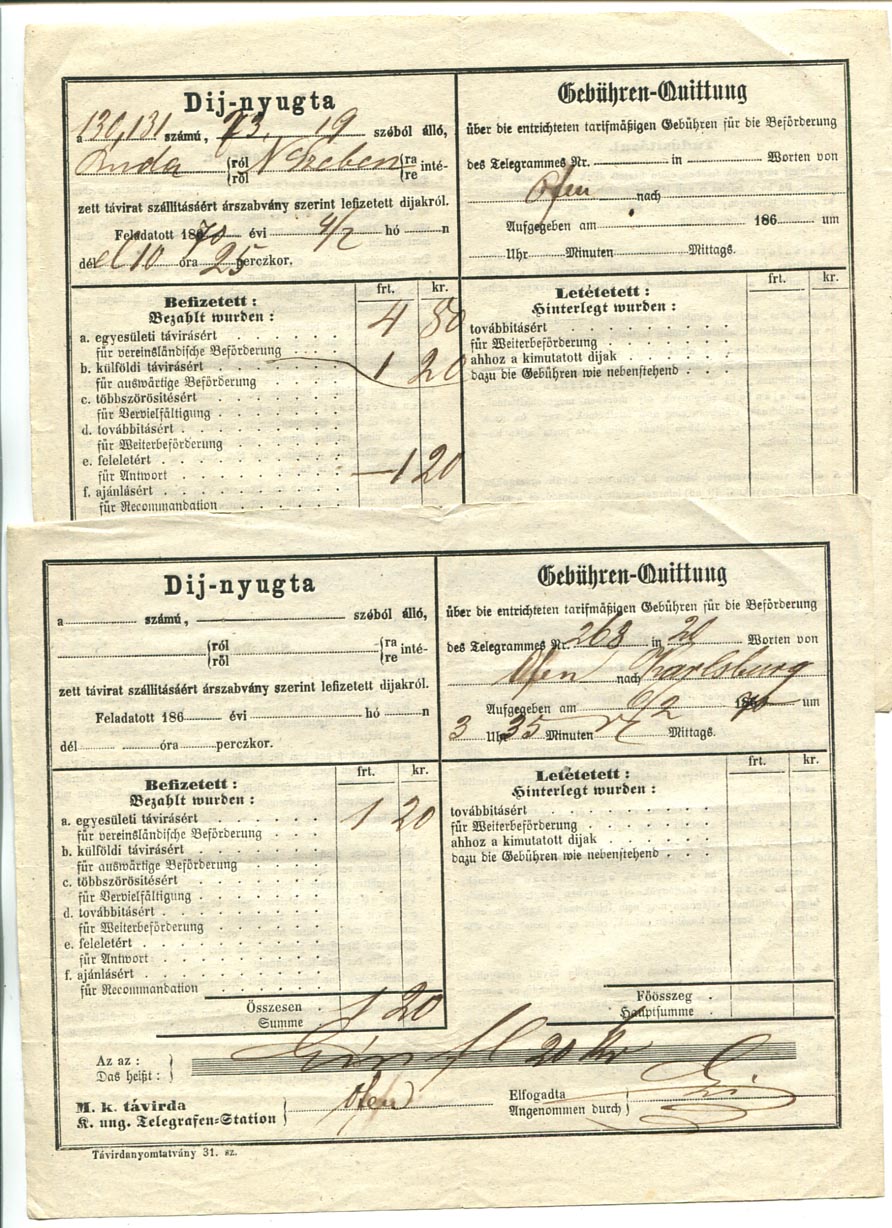 Dij-nyugta
a 130, 131 számú, 73, 19 széból álló,
Buda (ról ről N Szeben (ra re inté-
zett távirat szállitásáért árszabvány szerint lefizetett dijakról.
Feladatott 1870 évi 4/2 hó n
dél el 10 óra 25 perczkor.
Gebühren-Quittung
über die entrichteten tarifmäßigen Gebühren für die Beförderung
des Telegrammes Nr. in Worten von
Ofen nach
Aufgegeben am 186 um
Uhr Minuten Mittags.
Befizetett :
Bezahlt wurden :
frt. kr.
a. egyesületi távirásért 4 80
für vereinsländische Beförderung
b. külföldi távirásért 1 20
für auswärtige Beförderung
c. többszörösitésért
für Vervielfältigung
d. továbbitásért
für Weiterbeförderung
e. feleletért
für Antwort 1 20
f. ajánlásért
für Recommandation
Letétetett :
Hinterlegt wurden :
frt. kr.
továbbitásért
für Weiterbeförderung
ahhoz a kimutatott dijak
dazu die Gebühren wie nebenstehend
Dij-nyugta
a számú, széból álló,
(ról ről (ra re inté-
zett távirat szállitásáért árszabvány szerint lefizetett dijakról.
Feladatott 186 évi hó n
dél óra perczkor.
Gebühren-Quittung
über die entrichteten tarifmäßigen Gebühren für die Beförderung
des Telegrammes Nr. 268 in 20 Worten von
Ofen nach Karlsburg
Aufgegeben am 6/2 1870 um
3 Uhr 35 Minuten Mittags.
Befizetett :
Bezahlt wurden :
frt. kr.
a. egyesületi távirásért 1 20
für vereinsländische Beförderung
b. külföldi távirásért
für auswärtige Beförderung
c. többszörösitésért
für Vervielfältigung
d. továbbitásért
für Weiterbeförderung
e. feleletért
für Antwort
f. ajánlásért
für Recommandation
Összesen
Summe 1 20
Letétetett :
Hinterlegt wurden :
frt. kr.
továbbitásért
für Weiterbeförderung
ahhoz a kimutatott dijak
dazu die Gebühren wie nebenstehend
Főösszeg
Hauptsumme
Az az :
Das heißt : Ein fl 20 kr
M. k. távirda
K. ung. Telegrafen-Station
Ofen
Elfogadta
Angenommen durch
Távirdanyomtatvány 31. sz.